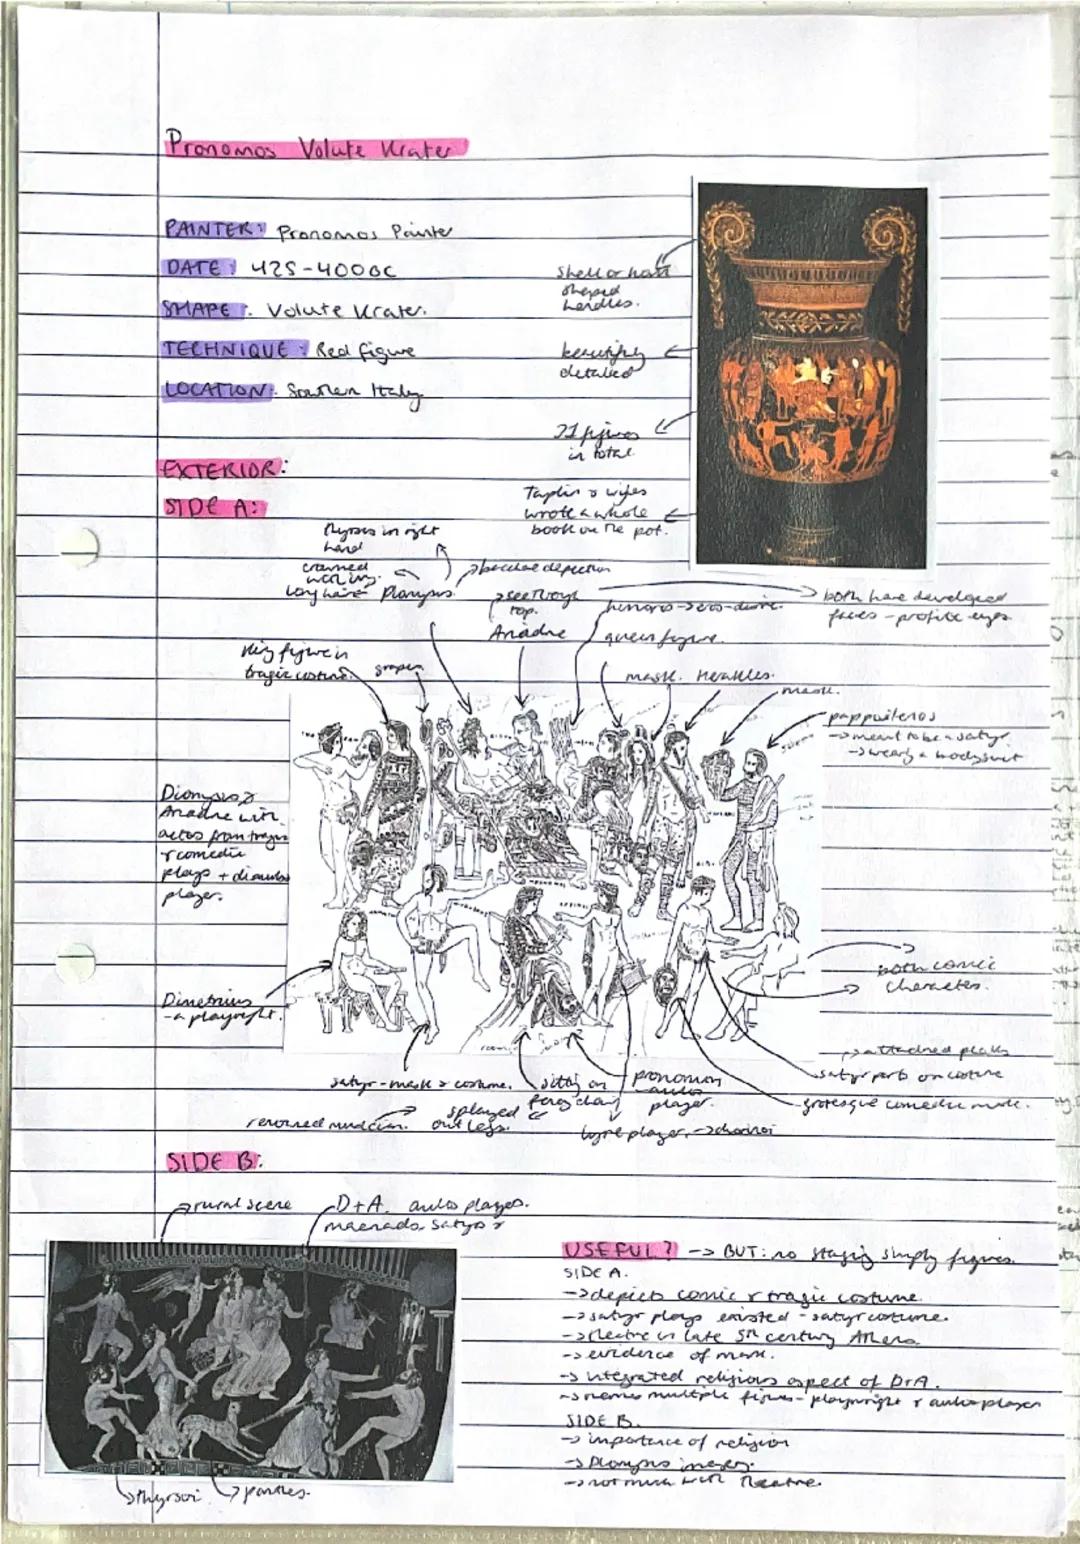 Pronomos Volute Krater
PAINTER: Pronomos Painter
DATE: 425-400BC
SHAPE: Volute Krater.
TECHNIQUE: Red figure
LOCATION: Southern Italy
shell or
shaped
handles.
beautifully
detailed
31 figures
in total
Taplin & wyles
wrote a whole
book on the pot.
EXTERIOR:
SIDE A:
thyrsos in right
hand
crowned
with ivy.
long hair
Dionysus.
see through
top.
Ariadne
himeros
queen figure.
both have developed
faces - profile eyes
King figure in
tragic costume.
grapes
mask. Herakles.
mask.
pappasilenos
→ meant to be a satyr
→ wearing a bodysuit
Dionysos &
Ariadne with
actors from tragic
& comedic
plays +
player.
Dimetrius
- a playwright.
both comic
characters.
satyr - mask & costume.
sitting on
fancy chair
pronomos
aulos
player.
attached phallus
satyr parts on costume
grotesque comedic mask.
renowned musician.
splayed
out legs.
lyre player. →
SIDE B:
rural scene
D+A. aulos player.
maenads satyrs &
thyrsoi
panthers.
USEFUL? → BUT: no staging simply figures.
SIDE A.
→ depicts comic & tragic costume.
→ satyr plays existed - satyr costume.
→ theatre in late 5th century Athens.
→ evidence of mask.
→ integrated religious aspect of D+A.
→ names multiple figures - playwright & aulos player
SIDE B.
→ importance of religion
→ Dionysus imagery.
→ not much with theatre.